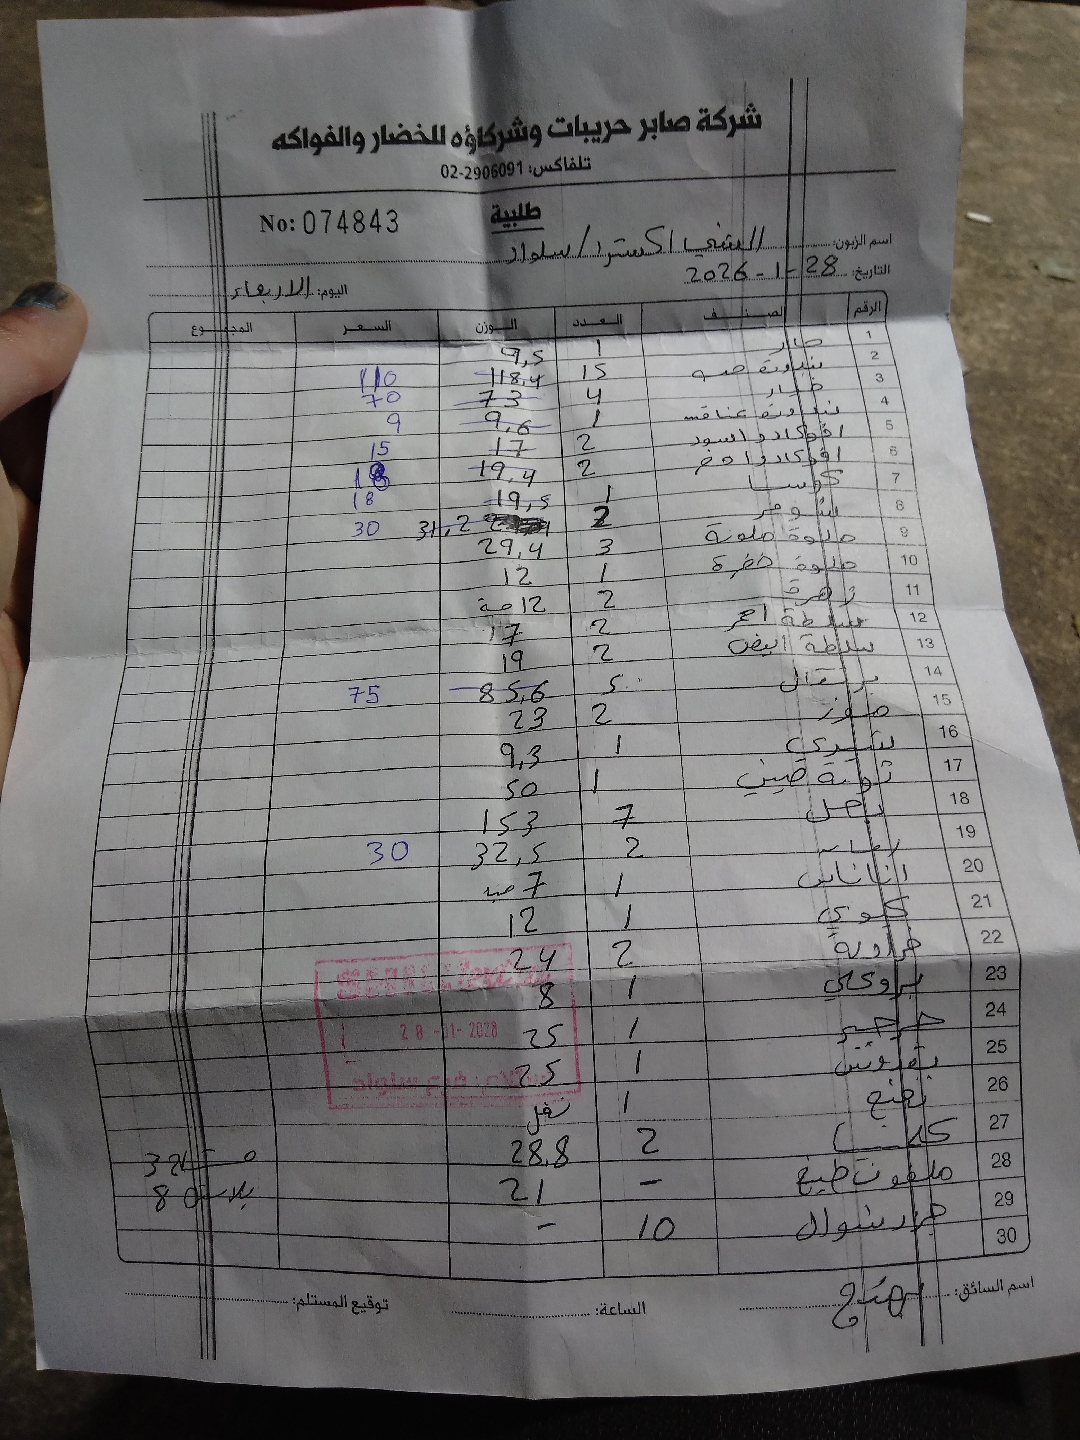 شركة صابر حريبات وشركاؤه للخضار والفواكه
تلفاكس: 02-2906091
طلبية
No: 074843
اسم الزبون: الشني اكسترا / سلواد
التاريخ: 28-1-2026
اليوم: الاربعاء
الرقم الصنف العدد الوزن السعر المجموع
1 حار 1 9,5
2 بندورة حبه 15 118,4 110
3 خيار 4 73 70
4 بندورة عناقيد 1 9,6 9
5 افوكادو اسود 2 17 15
6 افوكادو اخضر 2 19,4 18
7 كوسا 1 19,5 18
8 شومر 2 31,2 30
9 حلوة ملونة 3 29,4
10 حلوة خضرة 1 12
11 زهرة 2 12 حبة
12 سلطة احمر 2 17
13 سلطة ابيض 2 19
14 برتقال 5 85,6 75
15 موز 2 23
16 شيري 1 9,3
17 ثومة صيني 1 50
18 بصل 7 153
19 2 32,5 30
20 اناناس 1 7 حبة
21 كيوي 1 12
22 فراولة 2 24
23 بروكلي 1 8
24 جرجير 1 25
25 بقدونس 1 25
26 نعنع 1
27 2 28,8
28 ملفوف طبيخ - 21
29 جزر شوال 10 -
30
32
بلاستك 80
28-01-2026
اسم السائق:
الساعة:
توقيع المستلم: